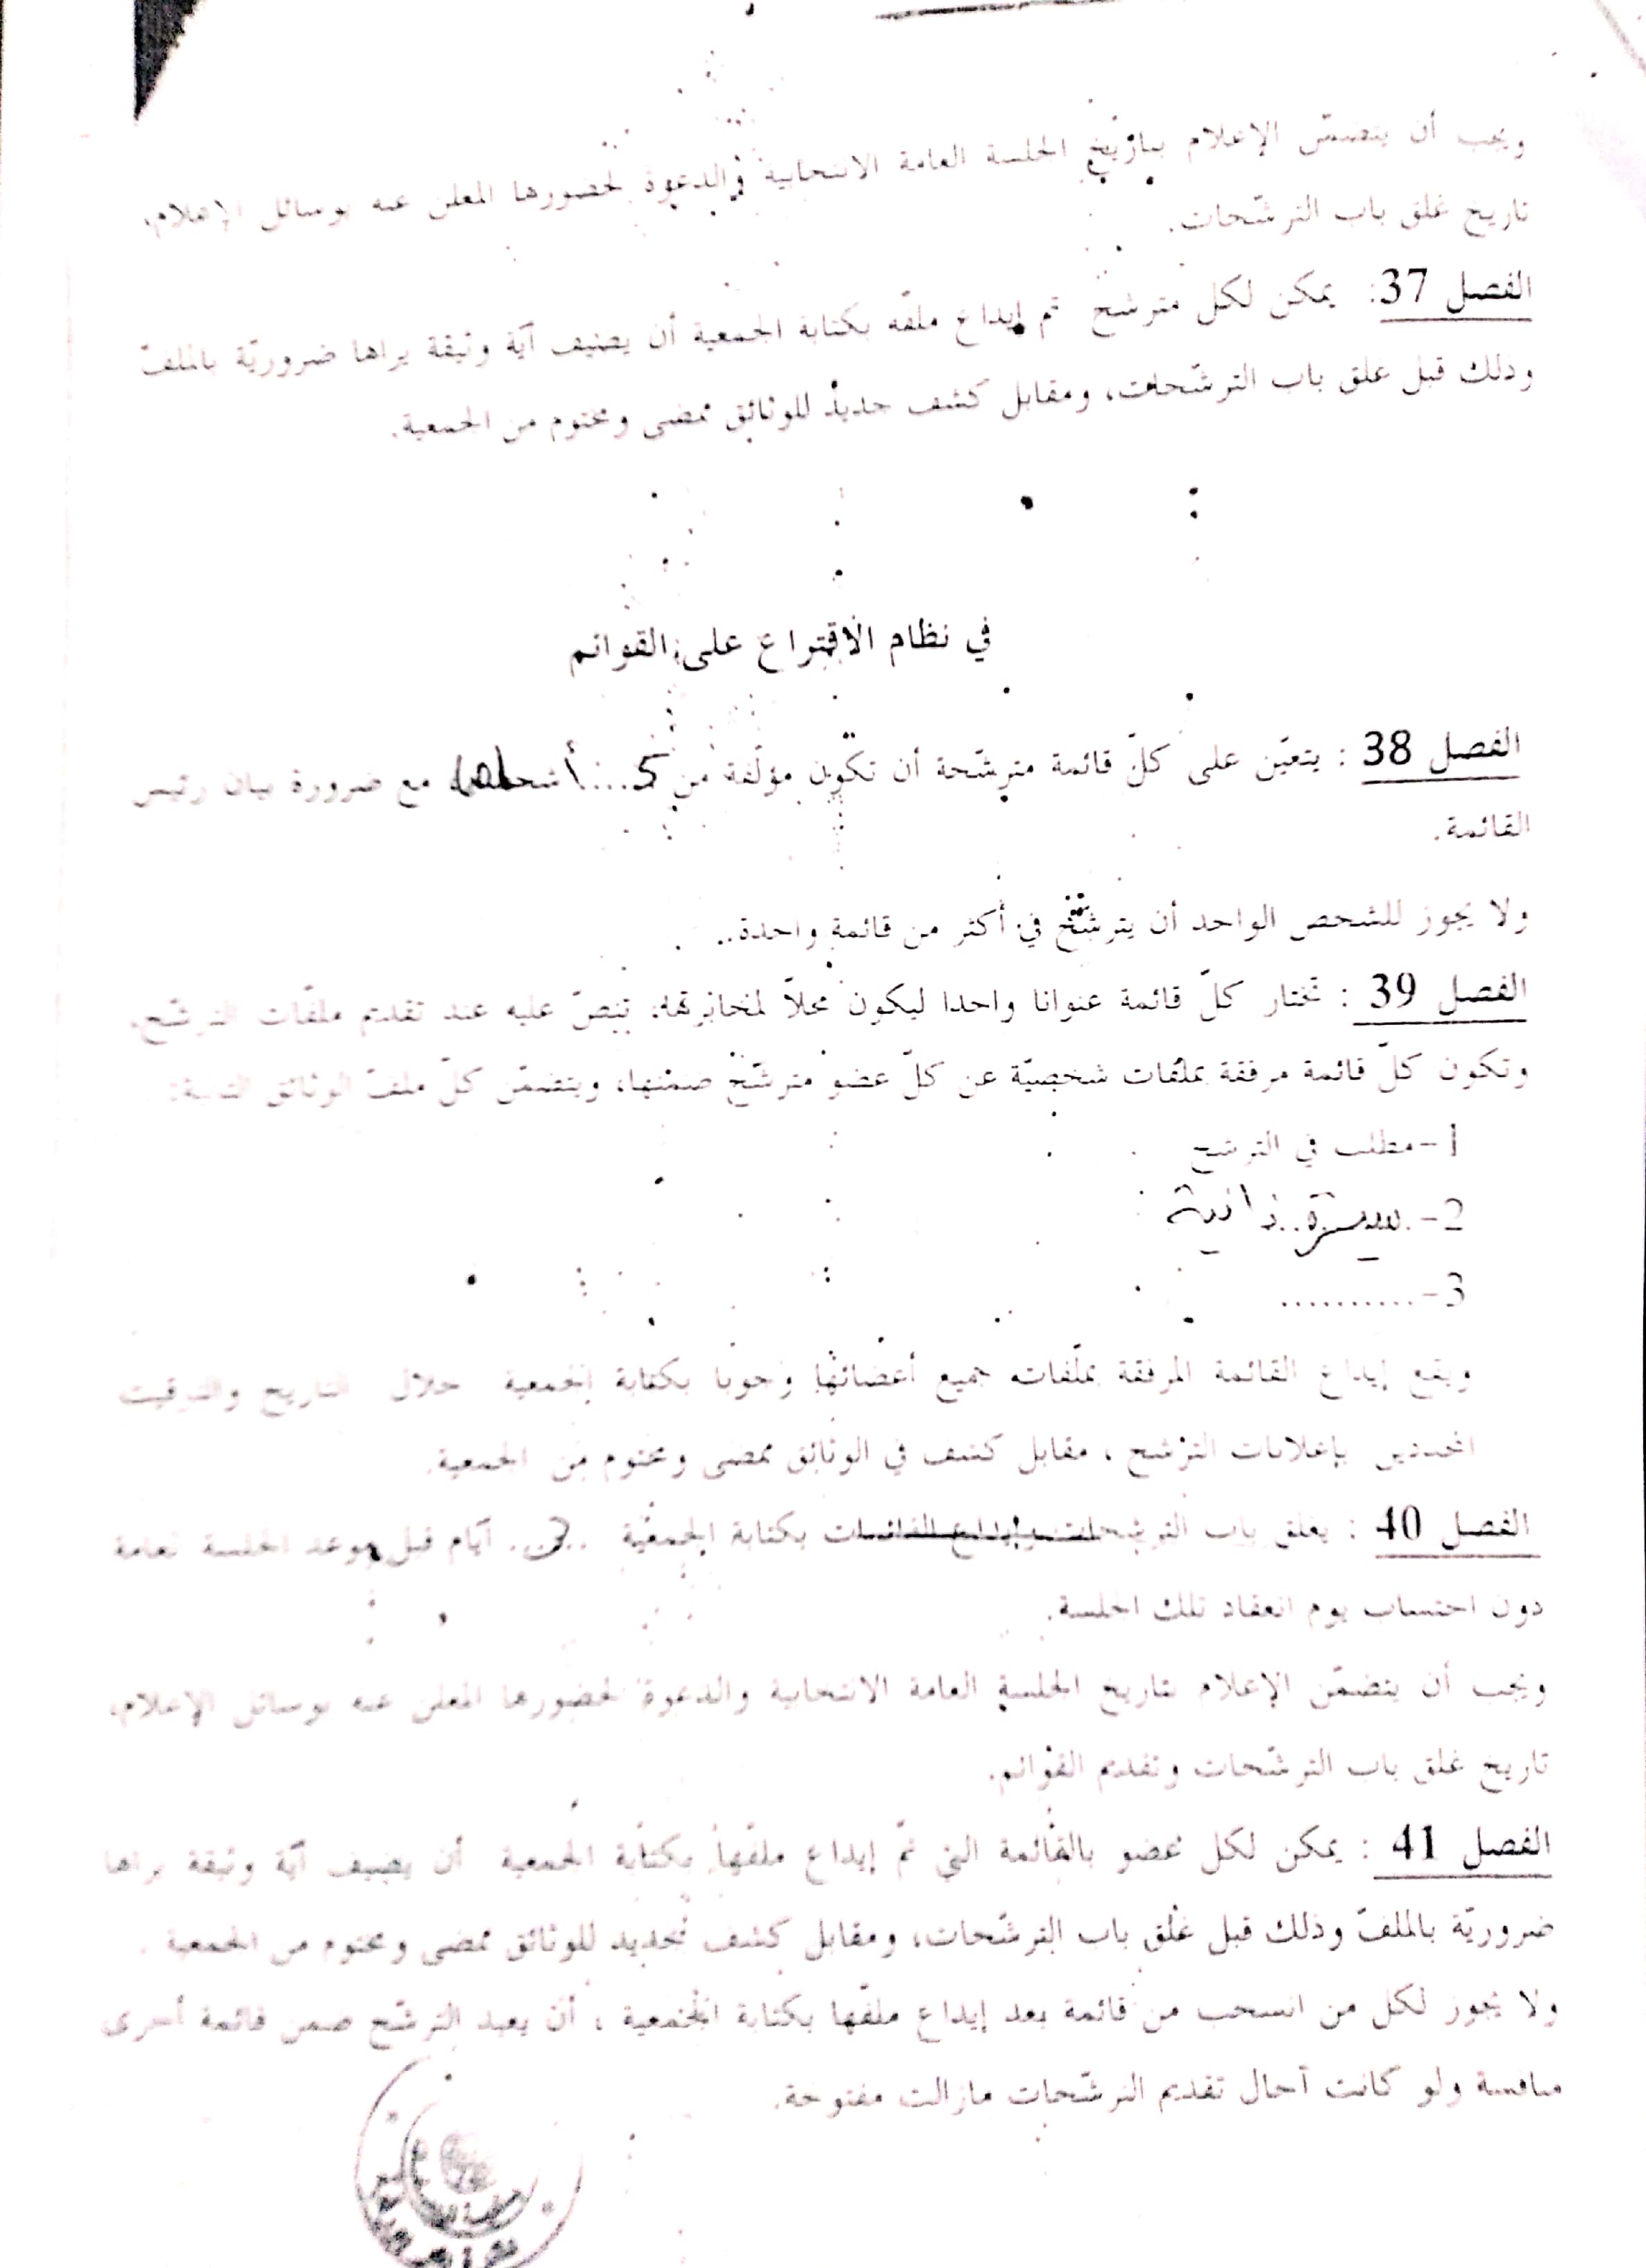 ويجب أن يتضمّن الإعلام بتاريخ الجلسة العامة الانتخابية والدعوة لحضورها المعلن عنه بوسائل الإعلام،
تاريخ غلق باب الترشّحات.
الفصل 37: يمكن لكل مترشح تم إيداع ملفّه بكتابة الجمعية أن يضيف أيّة وثيقة يراها ضروريّة بالملفّ
وذلك قبل غلق باب الترشّحات، ومقابل كشف جديد للوثائق ممضى ومختوم من الجمعية.
في نظام الاقتراع على القوائم
الفصل 38 : يتعيّن على كلّ قائمة مترشّحة أن تكون مؤلّفة من 5... مع ضرورة بيان رئيس
القائمة.
ولا يجوز للشخص الواحد أن يترشّح في أكثر من قائمة واحدة..
الفصل 39 : تختار كلّ قائمة عنوانا واحدا ليكون محلاّ لمخابرتها، تنصّ عليه عند تقديم ملفّات الترشّح.
وتكون كلّ قائمة مرفقة بملفّات شخصيّة عن كلّ عضو مترشّح ضمنها، ويتضمّن كلّ ملفّ الوثائق التالية:
1-مطلب في الترشح
2-.سيرة..ذاتية
3-..........
ويقع إيداع القائمة المرفقة بملفّات جميع أعضائها وجوبا بكتابة الجمعية خلال التاريخ والتوقيت
المحددين بإعلانات الترشح ، مقابل كشف في الوثائق ممضى ومختوم من الجمعية.
الفصل 40 : يغلق باب الترشحات وإيداع الملفات بكتابة الجمعية ..3.. أيّام قبل موعد الجلسة العامة
دون احتساب يوم انعقاد تلك الجلسة.
ويجب أن يتضمّن الإعلام بتاريخ الجلسة العامة الانتخابية والدعوة لحضورها المعلن عنه بوسائل الإعلام،
تاريخ غلق باب الترشّحات وتقديم القوائم.
الفصل 41 : يمكن لكل عضو بالقائمة التي تمّ إيداع ملفّها بكتابة الجمعية أن يضيف أيّة وثيقة يراها
ضروريّة بالملفّ وذلك قبل غلق باب الترشّحات، ومقابل كشف جديد للوثائق ممضى ومختوم من الجمعية .
ولا يجوز لكل من انسحب من قائمة بعد إيداع ملفّها بكتابة الجمعية ، أن يعيد الترشّح ضمن قائمة أخرى
منافسة ولو كانت آجال تقديم الترشّحات مازالت مفتوحة.